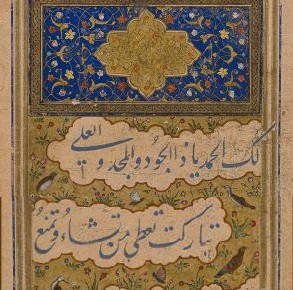 لك الحمد يا ذا الجود والمجد والعلى
تباركت تعطي من تشاء وتمنع